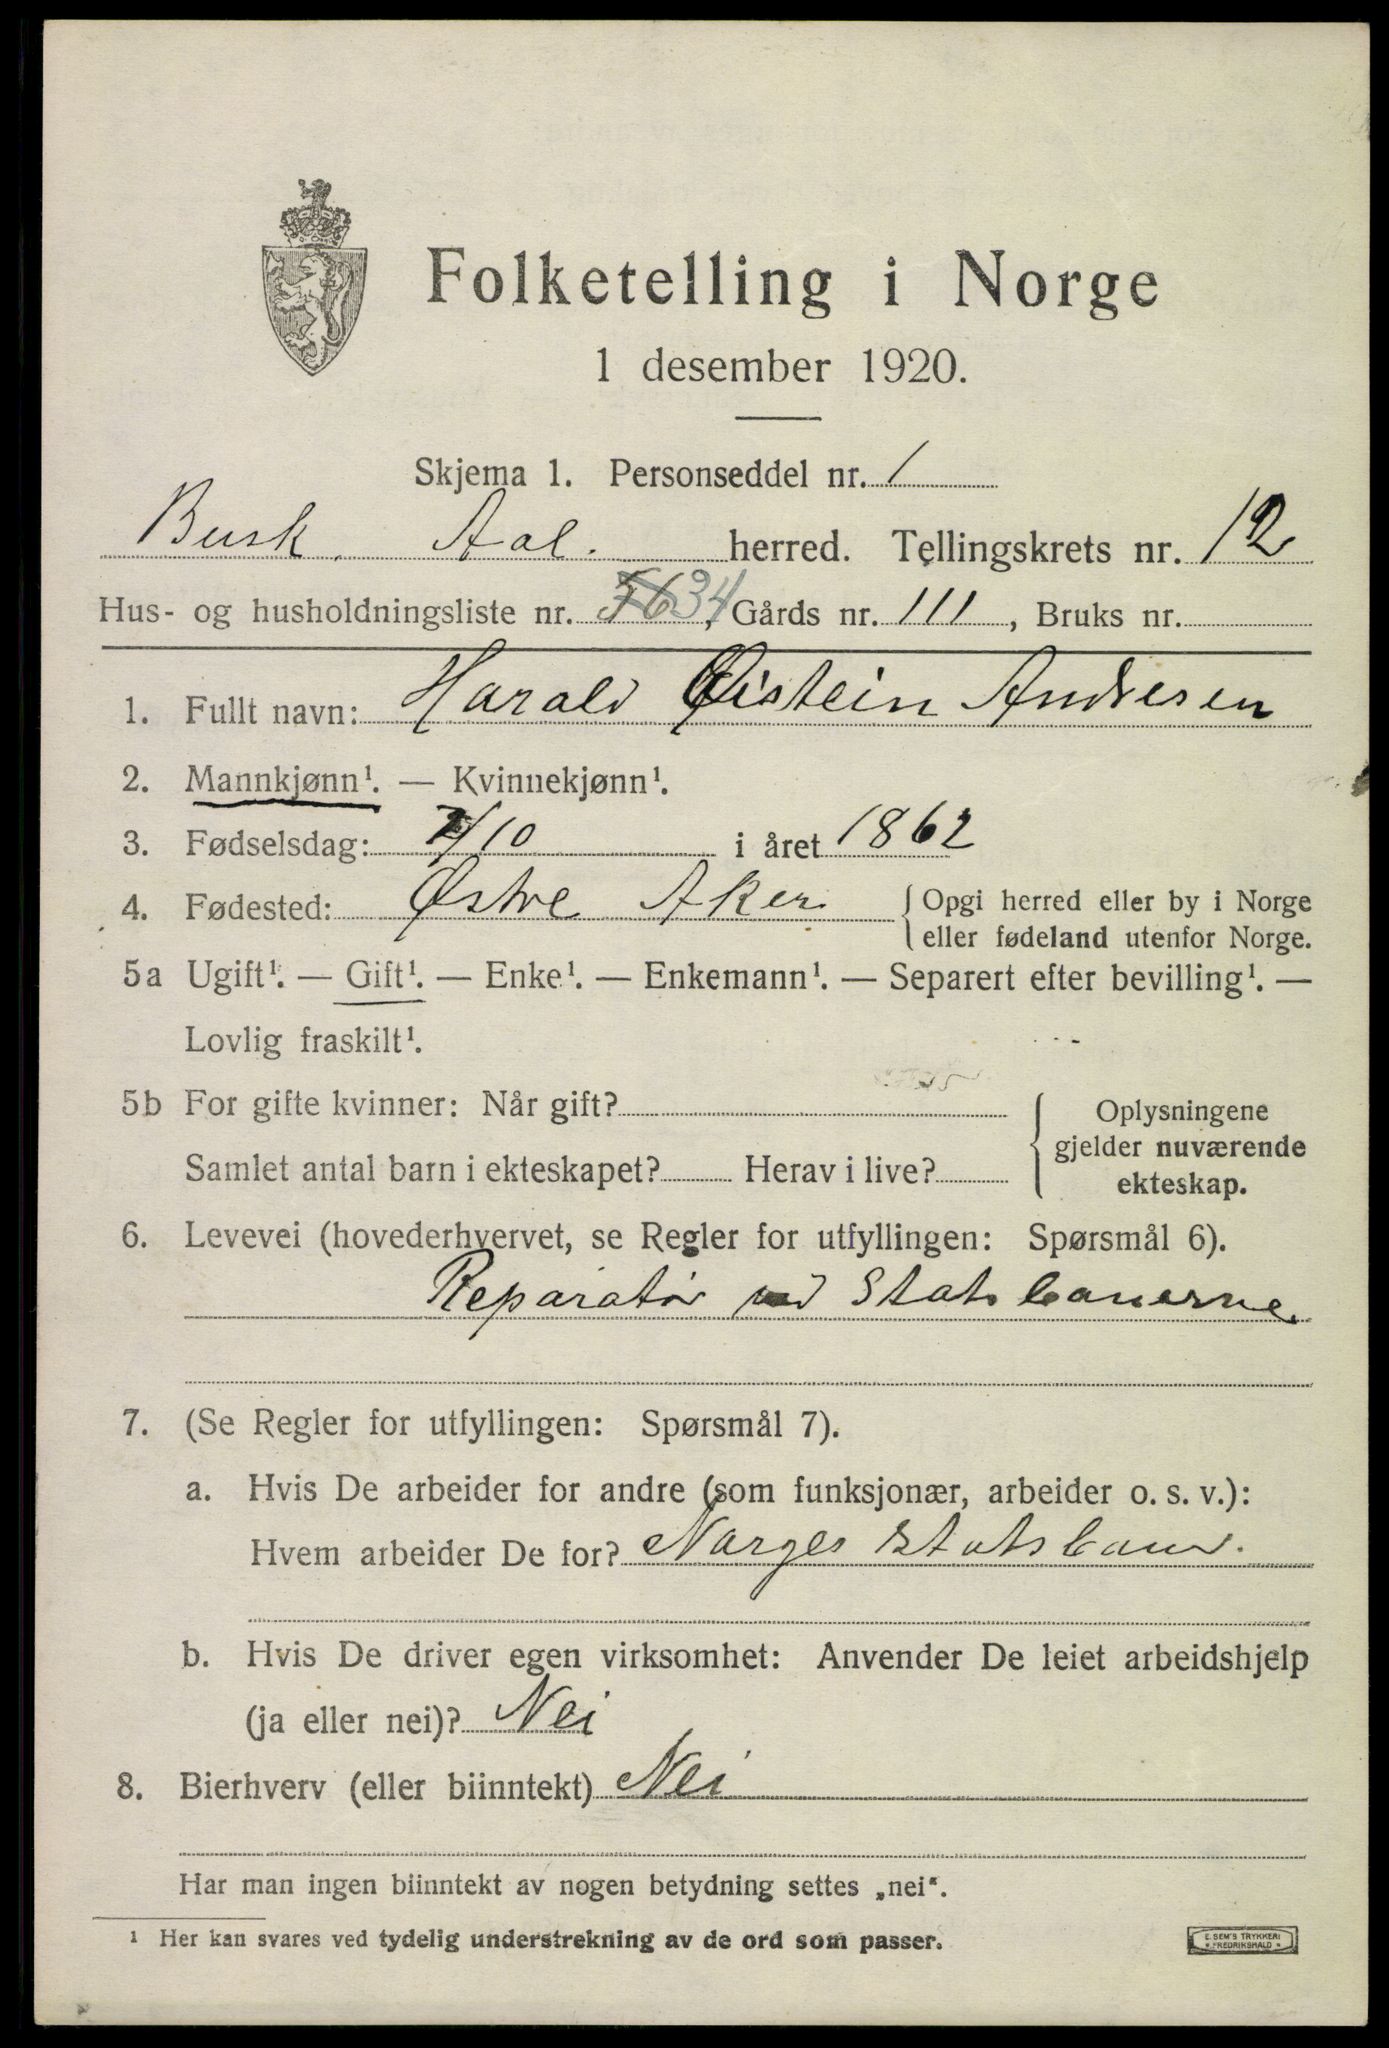 Folketelling i Norge
1 desember 1920.
Skjema 1. Personseddel nr. 1
Busk. Aal. herred. Tellingskrets nr. 12
Hus- og husholdningsliste nr. 56 34, Gårds nr. 111, Bruks nr.
1. Fullt navn: Harald Øistein Andresen
2. Mannkjønn¹. — Kvinnekjønn¹.
3. Fødselsdag: 7/10 i året 1862
4. Fødested: Østre Aker { Opgi herred eller by i Norge
eller fødeland utenfor Norge.
5a Ugift¹. — Gift¹. — Enke¹. — Enkemann¹. — Separert efter bevilling¹. —
Lovlig fraskilt¹.
5b For gifte kvinner: Når gift? { Oplysningene
gjelder nuværende
Samlet antal barn i ekteskapet? Herav i live? ekteskap.
6. Levevei (hovederhvervet, se Regler for utfyllingen: Spørsmål 6).
Reparatør ved Statsbanerne
7. (Se Regler for utfyllingen: Spørsmål 7).
a. Hvis De arbeider for andre (som funksjonær, arbeider o. s. v.):
Hvem arbeider De for? Norges Statsbaner.
b. Hvis De driver egen virksomhet: Anvender De leiet arbeidshjelp
(ja eller nei)? Nei
8. Bierhverv (eller biinntekt) Nei
Har man ingen biinntekt av nogen betydning settes „nei“.
¹ Her kan svares ved tydelig understrekning av de ord som passer.
E. SEM'S TRYKKERI
• FREDRIKSHALD •